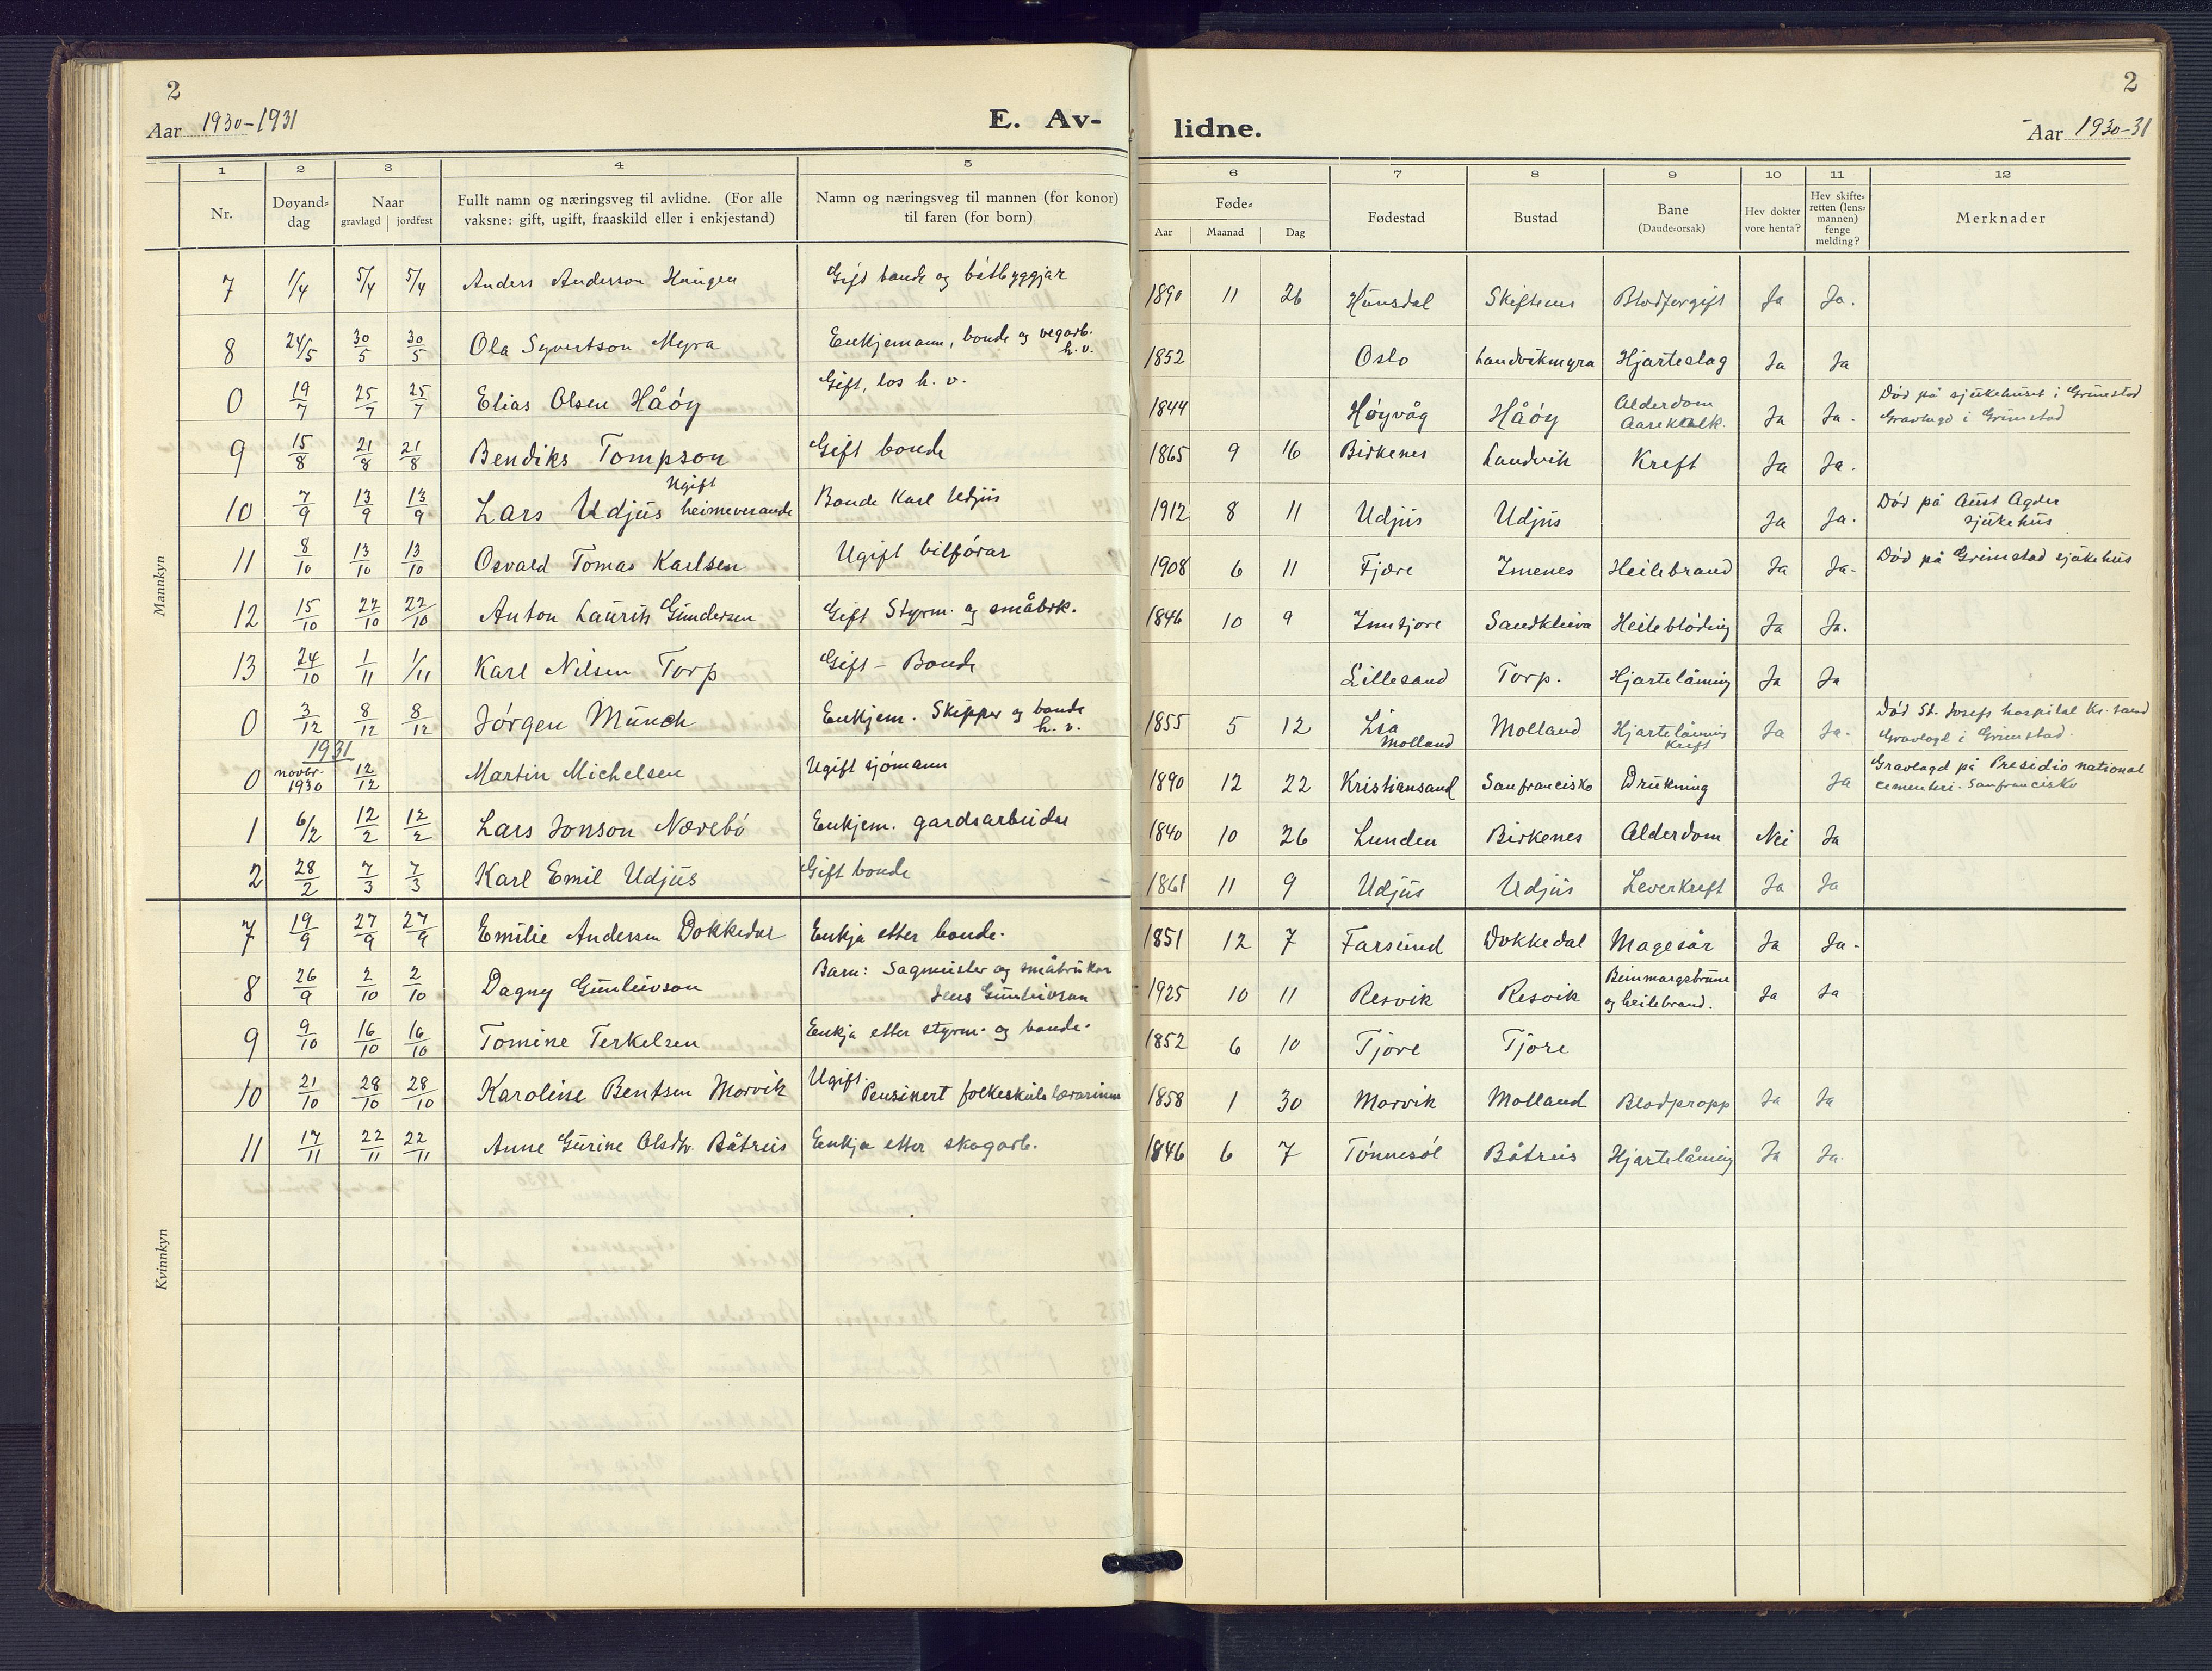 2
Aar 1930-1931
E. Av-
lidne.
2
Aar 1930-31
1 2 3 4 5 6 7 8 9 10 11 12
Nr.
Døyand-dag
Naar
gravlagd jordfest
Fullt namn og næringsveg til avlidne. (For alle
vaksne: gift, ugift, fraaskild eller i enkjestand)
Namn og næringsveg til mannen (for konor)
til faren (for born)
Føde-
Aar Maanad Dag
Fødestad
Bustad
Bane
(Daude-orsak)
Hev dokter
vore henta?
Hev skifte-
retten (lens-
mannen)
fenge
melding?
Merknader
Mannkyn
7 1/4 5/4 5/4 Anders Anderson Haugen Gift bonde og båtbyggjar 1890 11 26 Hunsdal Skiftenes Blodforgift Ja Ja.
8 24/5 30/5 30/5 Ola Syvertson Myra Enkjemann, bonde og vegarb. h.v. 1852 Oslo Landvikmyra Hjarteslag Ja Ja
0 19/7 25/7 25/7 Elias Olsen Håöy Gift, los h. v. 1844 Höyvåg Håöy Alderdom Aareklalk. Ja Ja. Död på sjukehuset i Grimstad
Gravlagd i Grimstad
9 15/8 21/8 21/8 Bendiks Tompson Gift bonde 1865 9 16 Birkenes Landvik Kreft Ja Ja.
10 7/9 13/9 13/9 Lars Udjus Ugift heimeverande Bonde Karl Udjus 1912 8 11 Udjus Udjus Ja Ja. Död på Aust Agder
sjukehus
11 8/10 13/10 13/10 Osvald Tomas Karlsen Ugift bilförar 1908 6 11 Fjære Imenes Heilebrand Ja Ja. Död på Grimstad sjukehus
12 15/10 22/10 22/10 Anton Laurits Gundersen Gift Styrm. og småbrk. 1846 10 9 Inntjore Sandkleiva Heileblöding Ja Ja.
13 24/10 1/11 1/11 Karl Nilsen Torp Gift - Bonde Lillesand Torp. Hjartelåming Ja Ja
0 3/12 8/12 8/12 Jörgen Münch Enkjem. Skipper og bonde h. v. 1855 5 12 Lia Molland Molland Hjartelåming Kreft Ja Ja. Död St. Josefs hospital Kr.sand
Gravlagd i Grimstad.
1931
0 novbr. 1930 12/12 Martin Michelsen Ugift sjömann 1890 12 22 Kristiansand Sanfrancisko Drukning Ja Gravlagd på Presidio national
cementeri. Sanfrancisko
1 6/2 12/2 12/2 Lars Jonson Nærebö Enkjem. gardsarbeidar 1840 10 26 Lunden Birkenes Alderdom Nei Ja
2 28/2 7/3 7/3 Karl Emil Udjus Gift bonde 1861 11 9 Udjus Udjus Leverkreft Ja Ja
Kvinnkyn
7 19/9 27/9 27/9 Emilie Andersen Dokkedal Enkja etter bonde. 1851 12 7 Farsund Dokkedal Magesår Ja Ja.
8 26/9 2/10 2/10 Dagny Gunleivson Barn: Sagmeister og småbrukar
Jens Gunleivson 1925 10 11 Resvik Resvik Beinmargsbrune
og heilebrand. Ja Ja
9 9/10 16/10 16/10 Tomine Terkelsen Enkja etter styrm. og bonde. 1852 6 10 Tjore Tjore
10 21/10 28/10 28/10 Karoline Bentsen Morvik Ugift. Pensjnert folkeskulelærarinne 1858 1 30 Morvik Molland Blodpropp Ja Ja
11 17/11 22/11 22/11 Anne Gurine Olsdtr. Båtreis Enkja etter skogarb. 1846 6 7 Tönnesöl Båtreis Hjartelåming Ja Ja.